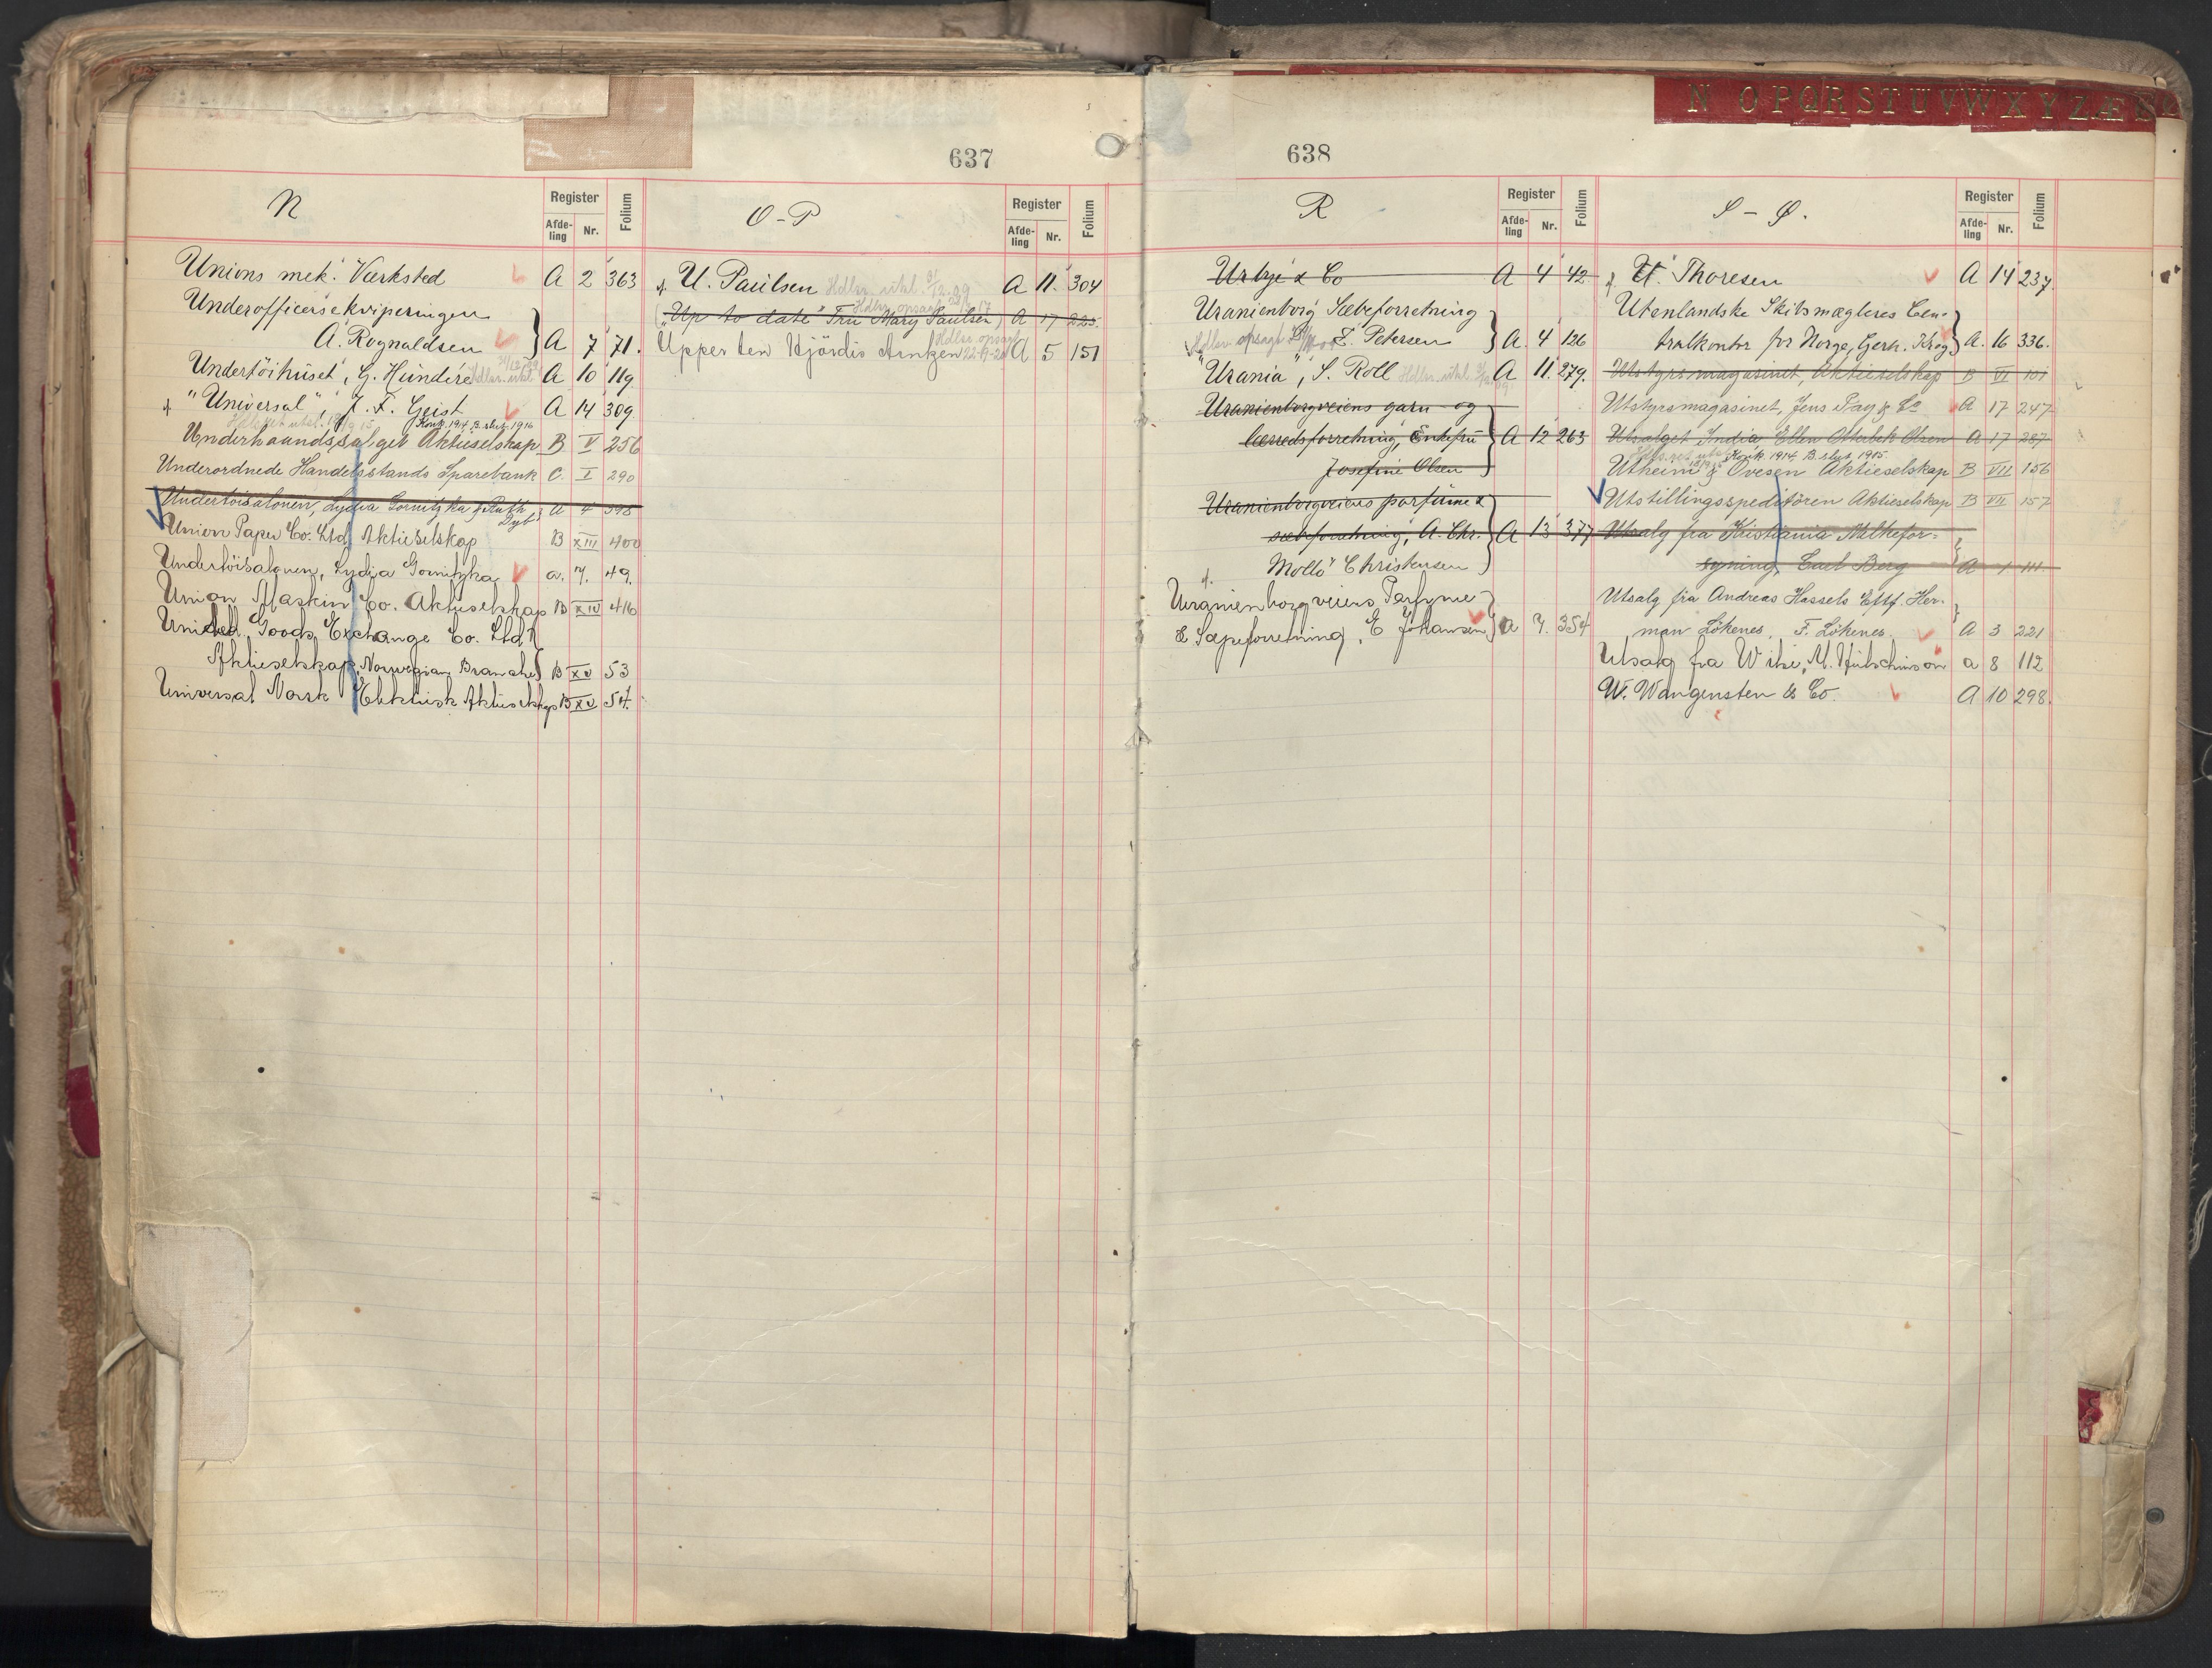 637
N
Register
Afde-
ling
Nr.
Folium
Unions mek. Værksted A 2 363
Underofficersekviperingen
A. Rognaldsen A 7 71.
Undertöihuset, G. Hundere Hdlsr. utel. A 10 119
"Universal", J. F. Geist A 14 309
Konk. 1914 B. slut. 1916
Underhaandssalget Aktieselskap B V 256
Underordnede Handelsstands Sparebank C. I 290
Undertöisalonen, Lydia Gornitzka & Ruth
Dyb A 4 398
Union Paper Co. Ltd. Aktieselskap B XIII 400
Undertöisalonen, Lydia Gornitzka a. 7. 49.
Union Maskin Co. Aktieselskap B XIV 416
United Goods Exchange Co. Ltd.
Aktieselskap, Norwegian Branche B XV 53
Universal Norsk Elektrisk Aktieselskap B XV 54.
O-P
Register
Afde-
ling
Nr.
Folium
U. Paulsen Hdlsr. utel. A 11. 304
Hdlsr. opsagt
("Up to date" Fru Mary Paulsen) A 17 225
Upper ten Hjördis Arntzen Hdlsr. opsagt A 5 151
638
N O P Q R S T U V W X Y Z Æ
R
Register
Afde-
ling
Nr.
Folium
Urbye & Co A 4 42
Uranienborg Sæbeforretning
Hdlsr. opsagt E. Petersen A. 4 126
"Urania", S. Roll Hdlsr. utel. A 11. 279.
Uranienborgveiens garn og
lærredsforretning, Enkefru A 12 263
Josefine Olsen
Uranienborgveiens parfume &
sæbeforretning, A. Chr. A 13 377
Mollö Christensen
Uranienborgveiens Parfyme
& Sæpeforretning, E Johansen a 7. 354
S - Ø.
Register
Afde-
ling
Nr.
Folium
U. Thoresen A 14 237
Utenlandske Skibsmægleres Cen-
tralkontor for Norge, Gerh. Krog A. 16 336.
Utstyrsmagasinet, Aktieselskap B VI 101
Utstyrsmagasinet, Jens Fay & Co A 17 247
Utsalget India Ellen Otterbek Olsen A 17 287
Konk 1914 B. slut. 1915
Utheim & Ovesen Aktieselskap B VII 156
Utstillingsspeditören Aktieselskap B VII 157
Utsalg fra Kristiania Melkefor-
syning, Carl Berg A 1 111
Utsalg fra Andreas Hassels Eftf. Her-
man Lökenes, F. Lökenes. A 3 221
Utsalg fra W ike, M. Hutchinson a 8 112
W. Wangensten & Co. A 10 298.